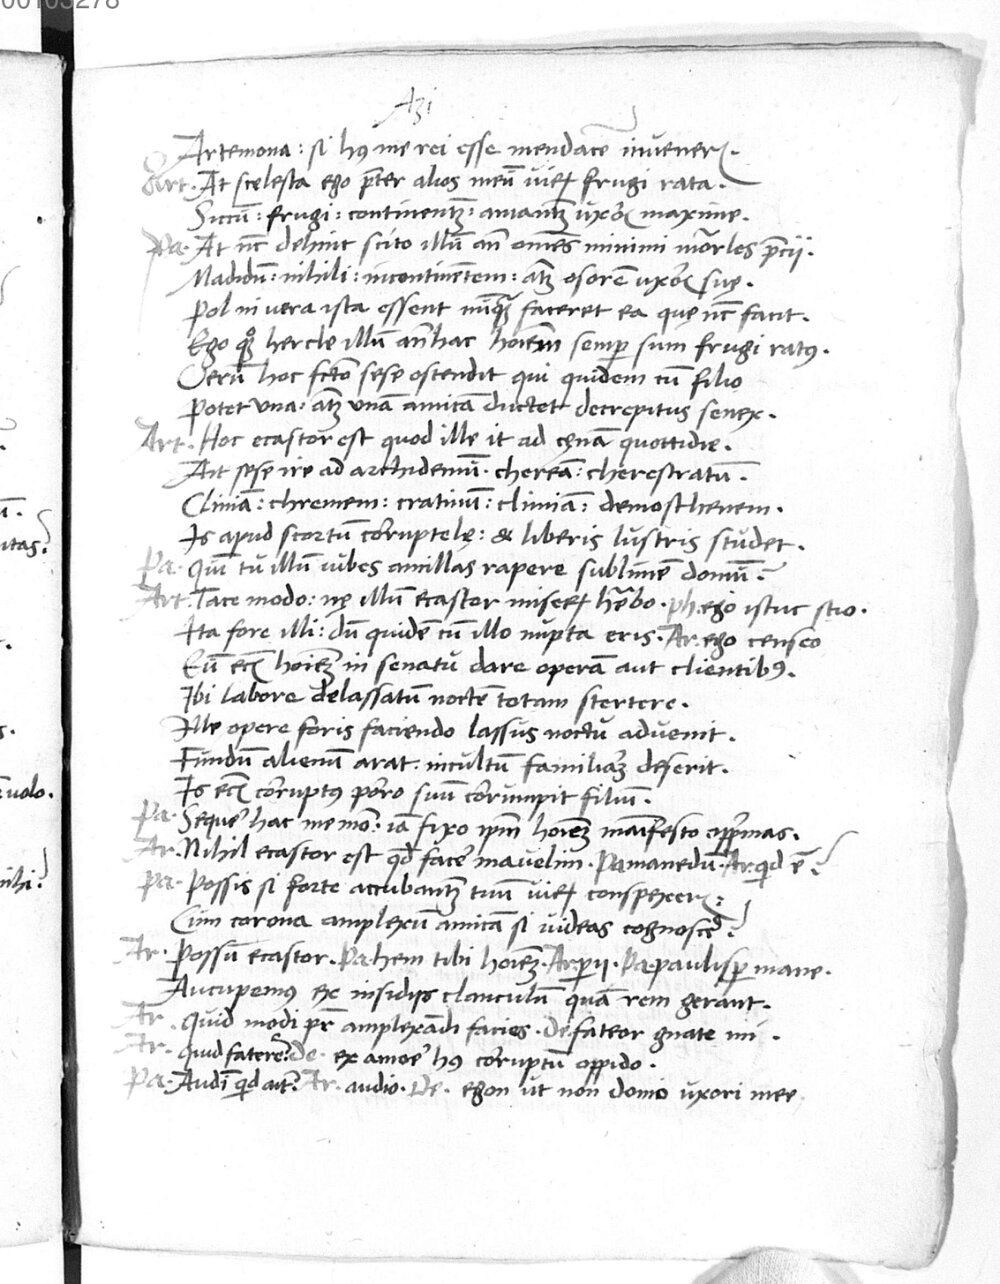 00103278
Azi
Artemona : si hꝰ me rei esse mendacē invenerꝭ.
Art. At scelesta ego p̄ter alios meū uiꝝ frugi rata.
Siccū : frugi : continentꝫ : amantꝫ uxorꝭ maxime.
Pa. At nc̄ dehinc scito illū an̄ om̄es minimi mor̄les p̄cij.
Madidū : nihili : incontinētem : atꝫ osorē uxorꝭ suę.
Pol ni vera ista essent nūꝗ̄ faceret ea quę nc̄ facit.
Ego qͦꝫ hercle illū an̄hac hoīem semꝑ sum frugi ratꝰ.
Verū hoc fc̄to sese ostendit qui quidem cū filio
Potet una : atꝫ unā amicā ductet decrepitus senex.
Art. Hoc ecastor est quod ille it ad cęnā quottidie.
Ait sese ire ad archidemū. chereā : cherestratū.
Cliniā : chremem : cratinū : cliniā : demosthenem.
Is apud scortū corruptelę : & liberis lustris studet.
Pa. Quī tū illū iubes ancillas rapere sublimē domū?
Art. Tace modo : nę illū ecastor miseꝝ hēbo. ph. ego istuc scio.
Ita fore illi : dū quidē cū illo nupta eris. Ar. ego censeo
Eū ec̄ hoīeꝫ in senatū dare operā aut clientibꝰ.
Ibi labore delassatū noctē totam stertere.
Ille opere foris faciendo lassus noctu advenit.
Fundū alienū arat. incultū familiarꝫ deserit.
Is ec̄ corruptꝰ porro suū corrumpit filiū.
Pa. Seqꝛe hac me mō : iā fixo ip̄m hoīeꝫ māifesto opp̄mas.
Ar. Nihil ecastor est qd̄ facꝛe mavelim. Pa. manedū. Ar. qd ē?
Pa. Possis si forte accubantꝫ tuū uiꝝ conspexerꝭ :
Cum corona amplexū amicā si uideas cognoscꝛe?
Ar. Possū ecastor. Pa. hem tibi hoīeꝫ. Ar. ꝑij. Pa. paulisꝑ mane.
Aucupemꝰ ex insidijs clanculū quā rem gerant.
Ar. Quid modi pr̄ amplexādi facies. De. fateor gnate mi.
Ar. Quid faterꝭ? de. ex amorꝛe hꝰ corruptū oppido.
Pa. Audī qd ait? Ar. audio. De. egon ut non domo uxori meę